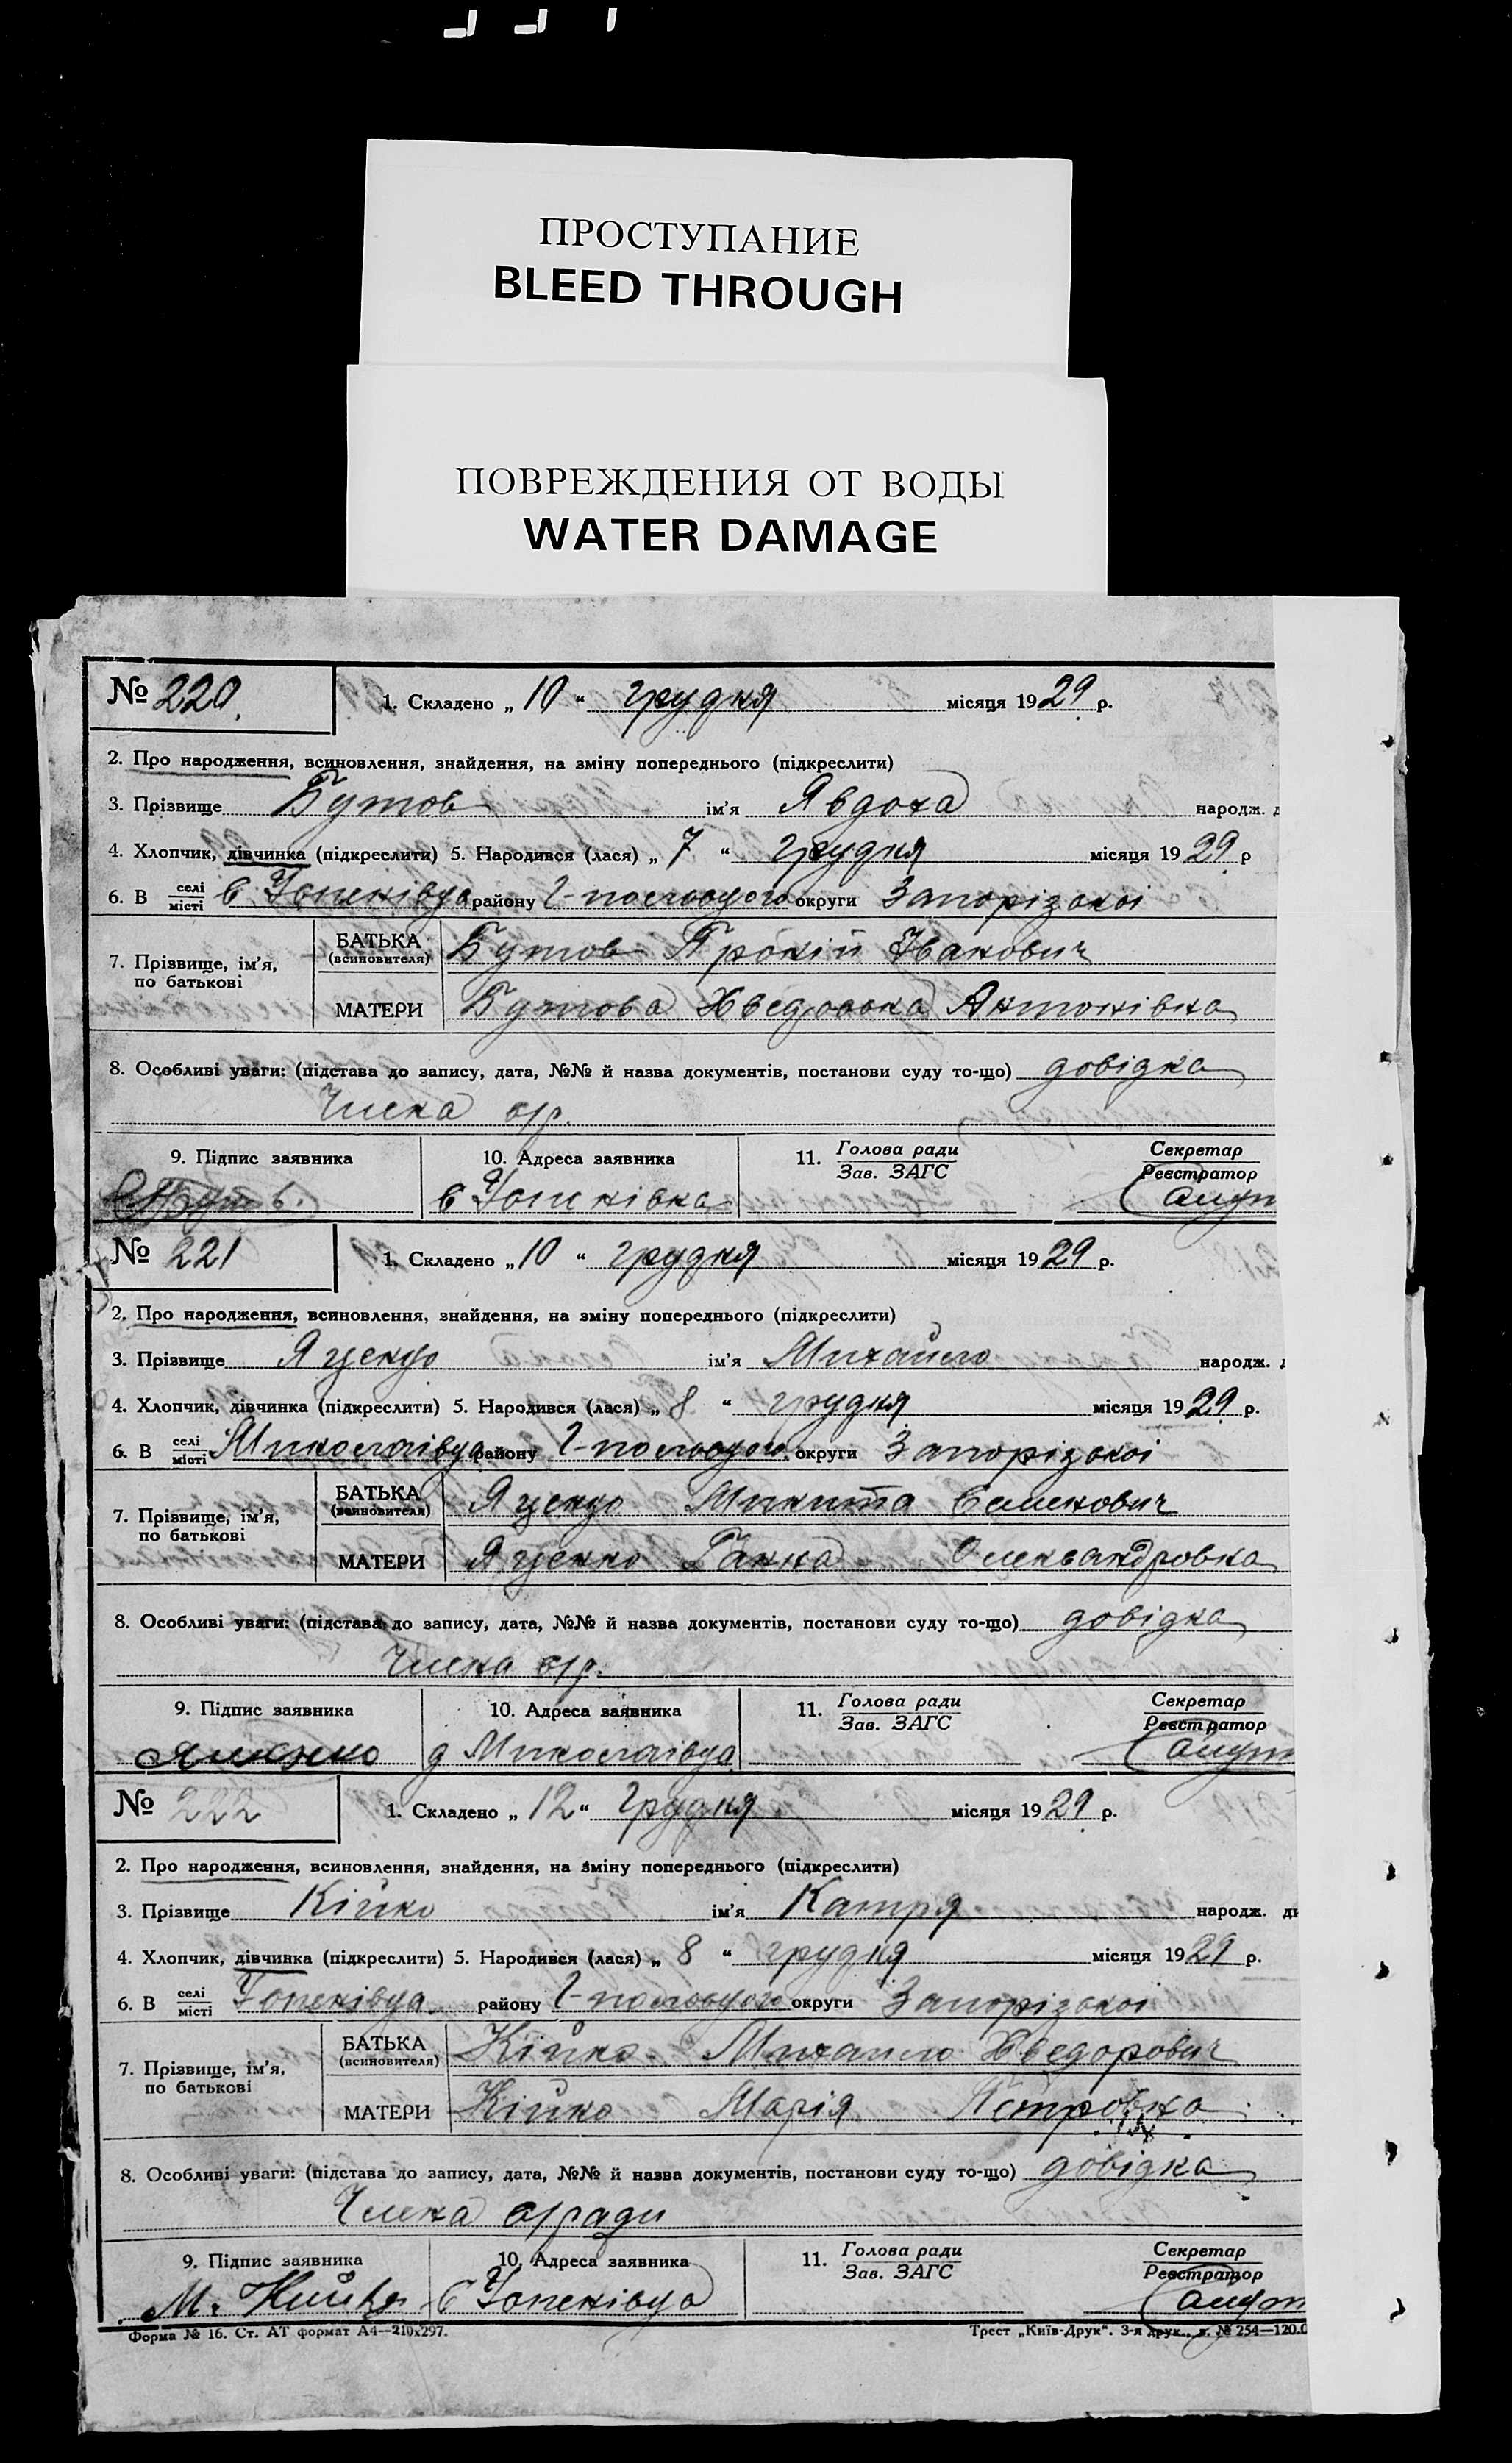 ПРОСТУПАНИЕ
BLEED THROUGH
ПОВРЕЖДЕНИЯ ОТ ВОДЫ
WATER DAMAGE
№ 220. 1. Складено „ 10 “ грудня місяця 1929 р.
2. Про народження, всиновлення, знайдення, на зміну попереднього (підкреслити)
3. Прізвище Бутов ім'я Явдоха народж.
4. Хлопчик, дівчинка (підкреслити) 5. Народився (лася) „ 7 “ грудня місяця 1929 р
6. В селі місті району округи Запорізокої
7. Прізвище, ім'я, по батькові БАТЬКА (всиновителя) Бутов Прокій Іванович
МАТЕРИ Бутова Антонівна
8. Особливі уваги: (підстава до запису, дата, №№ й назва документів, постанови суду то-що) довідка
Члена с/р.
9. Підпис заявника 10. Адреса заявника 11. Голова ради Зав. ЗАГС Секретар Реєстратор
№ 221 1. Складено „ 10 “ грудня місяця 1929 р.
2. Про народження, всиновлення, знайдення, на зміну попереднього (підкреслити)
3. Прізвище Яценко ім'я Михайло народж.
4. Хлопчик, дівчинка (підкреслити) 5. Народився (лася) „ 8 “ грудня місяця 1929 р.
6. В селі місті Миколаівка району округи Запорізокої
7. Прізвище, ім'я, по батькові БАТЬКА (всиновителя) Яценко Микита Семенович
МАТЕРИ Яценко Ганна Олександровна
8. Особливі уваги: (підстава до запису, дата, №№ й назва документів, постанови суду то-що) довідка
Члена с/р.
9. Підпис заявника 10. Адреса заявника 11. Голова ради Зав. ЗАГС Секретар Реєстратор
Миколаівка
№ 222 1. Складено „ 12 “ грудня місяця 1929 р.
2. Про народження, всиновлення, знайдення, на зміну попереднього (підкреслити)
3. Прізвище Кійко ім'я Катря народж.
4. Хлопчик, дівчинка (підкреслити) 5. Народився (лася) „ 8 “ грудня місяця 1929 р.
6. В селі місті району округи Запорізокої
7. Прізвище, ім'я, по батькові БАТЬКА (всиновителя) Кійко Михаило Хведорович
МАТЕРИ Кійко Марія Петровна
8. Особливі уваги: (підстава до запису, дата, №№ й назва документів, постанови суду то-що) довідка
Члена с/ради
9. Підпис заявника 10. Адреса заявника 11. Голова ради Зав. ЗАГС Секретар Реєстратор
М. Кийко
Форма № 16. Ст. АТ формат А4—210х297. Трест „Київ-Друк“. 3-я друк., з. № 254—120.0